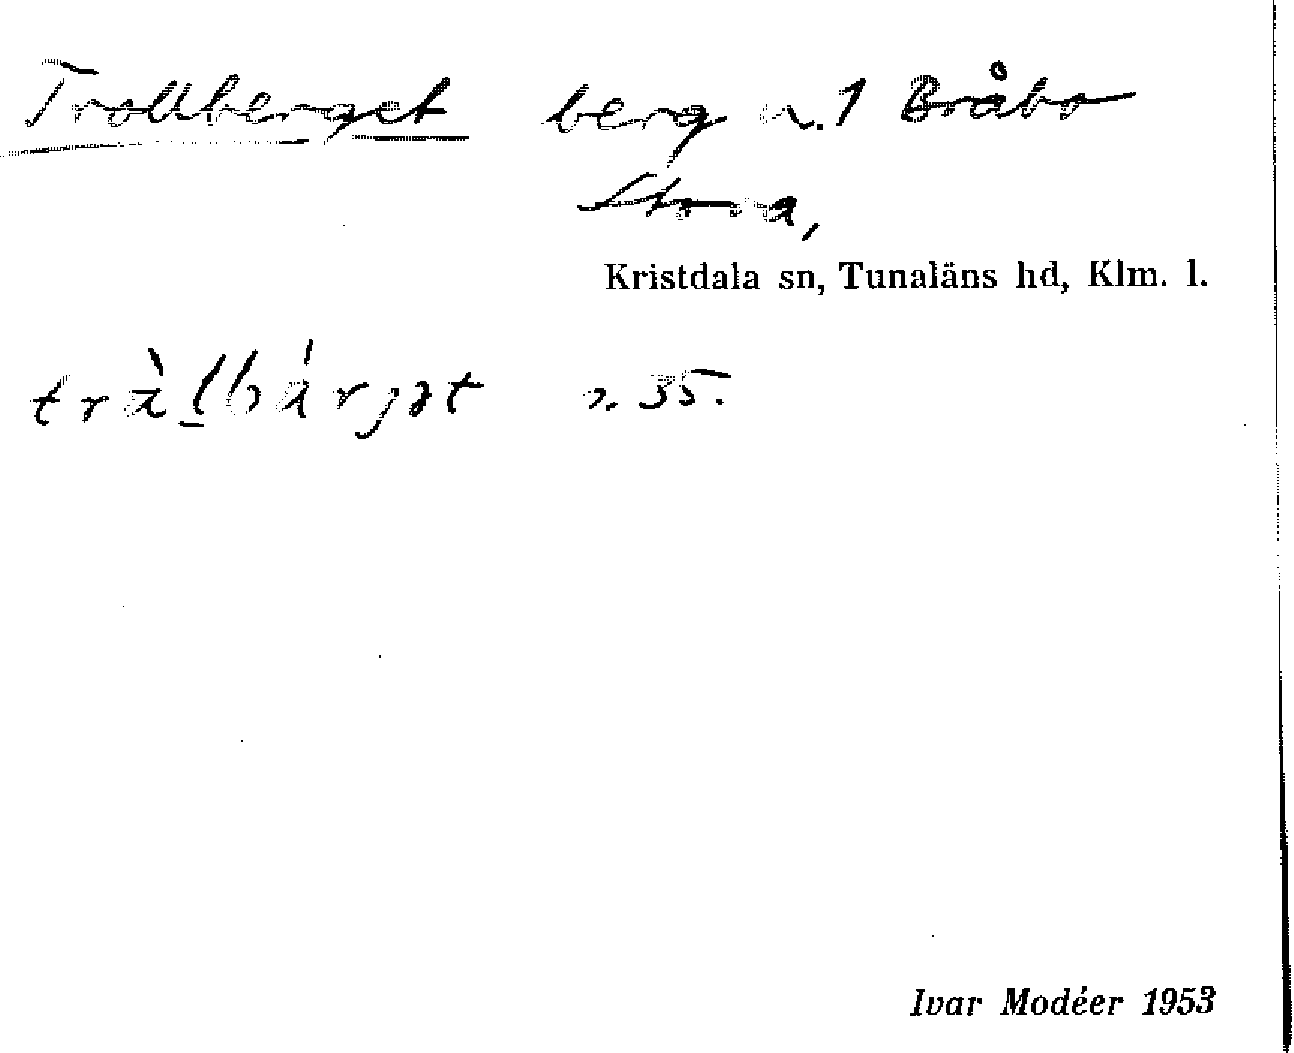 Trollberget berg n.1 Bråbo
Stora,
Kristdala sn, Tunaläns hd, Klm. l.
35.
Ivar Modéer 1953